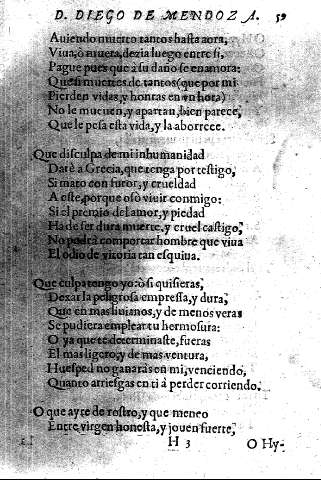 D. DIEGO DE MENDOZA. 59
Auiendo muerto tantos hasta aora,
Viua, o muera, dezia luego entre si,
Pague pues que a su daño se enamora:
Que si muertes de tantos (que por mi
Pierden vidas, y honras en vn hora)
No le mueuen, y apartan, bien parece,
Que le pesa esta vida, y la aborrece.
Que disculpa de mi inhumanidad
Darè a Grecia, que tenga por testigo,
Si mato con furor, y crueldad
A este, porque osò viuir conmigo:
Si el premio del amor, y piedad
Ha de ser dura muerte, y cruel castigo,
No podrà comportar hombre que viua
El odio de vitoria tan esquiua.
Que culpa tengo yo: ò si quisieras,
Dexar la peligrosa empressa, y dura,
Que en mas liuianos, y de menos veras
Se pudiera emplear tu hermosura:
O ya que te determinaste, fueras
El mas ligero, y de mas ventura,
Huesped no ganaras en mi, venciendo,
Quanto arriesgas en ti à perder corriendo.
O que ayre de rostro, y que meneo
Entre virgen honesta, y jouen fuerte,
H 3 O Hy-